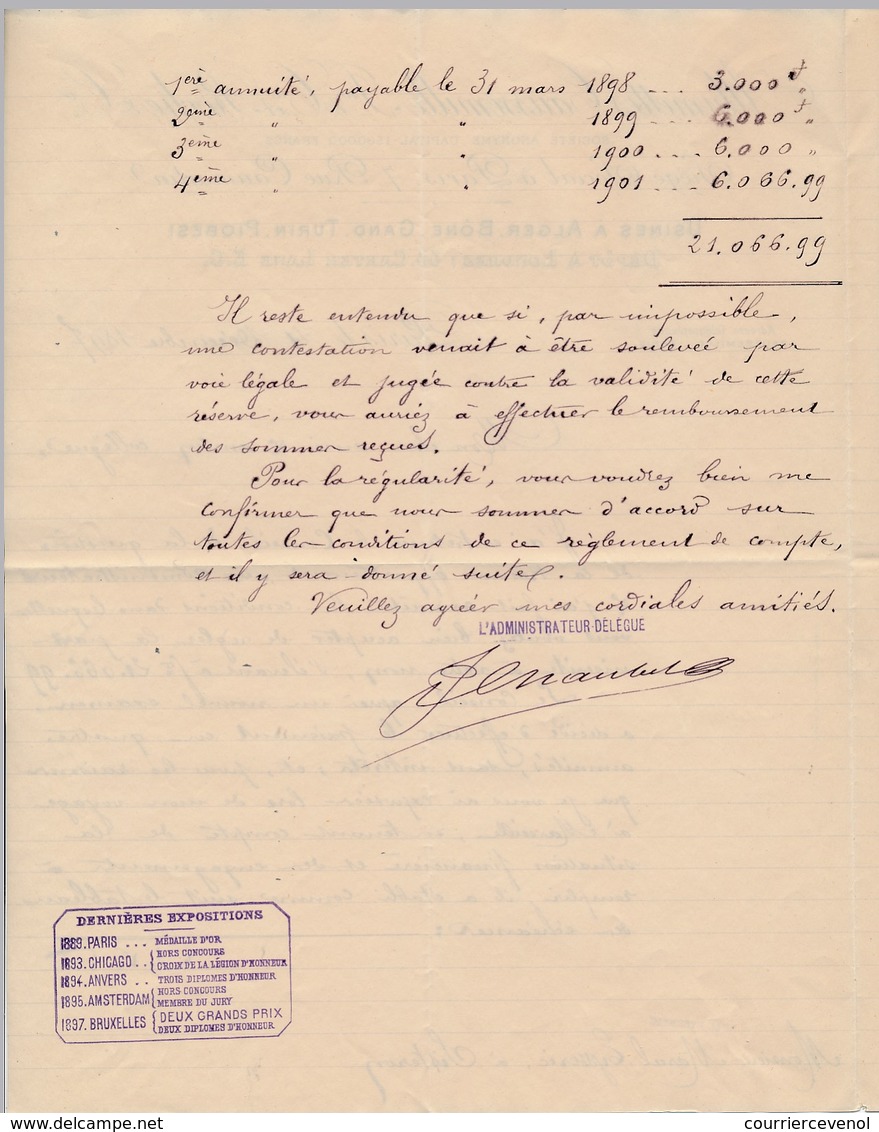 1ère annuité, payable le 31 mars 1898 ... 3.000 f "
2ème " " 1899 ... 6.000 f "
3ème " " 1900 ... 6.000 "
4ème " " 1901 ... 6.066.99
21.066.99
Il reste entendu que si, par impossible,
une contestation venait à être souleveé par
voie légale et jugée contre la validité de cette
réserve, vous auriez à effectuer le remboursement
des sommes reçues.
Pour la régularité, vous voudrez bien me
confirmer que nous sommes d'accord sur
toutes les conditions de ce règlement de compte,
et il y sera donné suite.
Veuillez agréer mes cordiales amitiés.
L'ADMINISTRATEUR-DÉLÉGUÉ
DERNIÈRES EXPOSITIONS
1889. PARIS ... MÉDAILLE D'OR
1893. CHICAGO .. { HORS CONCOURS
CROIX DE LA LÉGION D'HONNEUR
1894. ANVERS .. TROIS DIPLOMES D'HONNEUR
1895. AMSTERDAM { HORS CONCOURS
MEMBRE DU JURY
1897. BRUXELLES { DEUX GRANDS PRIX
DEUX DIPLOMES D'HONNEUR
courriercevenol